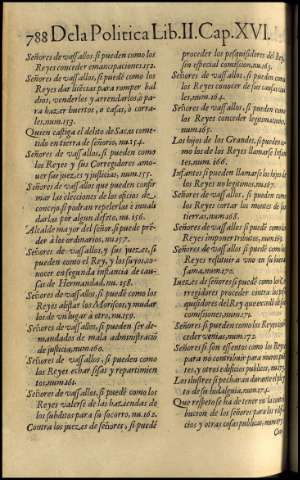 788 De la Politica Lib. II. Cap. XVI.
Señores de vassallos, si pueden como los
Reyes conceder emancipaciones. 152.
Señores de vassallos, si puedē como los
Reyes dar licēcias para romper bal
dios, venderlos y arrendarlos ò pa
ra hazer huertos, a casas, ò corra-
les, num. 153.
Quien castiga el delito de Sacas come-
tido en tierra de señores, nu. 154.
Señores de vassallos, si pueden como
los Reyes y sus Corregidores amo-
uer sus juezes y justicias, num. 155.
Señores de vassallos que pueden confir
mar las elecciones de los oficios de
concejo, si podran repelerlas è inuali
darlas por algun defeto, nu. 156.
Alcalde mayor del señor si puede pre-
der à los ordinarios, nu. 157.
Señores de vassallos, y sus juezes, si
pueden como el Rey, y los suyos, co-
nocer en segunda instancia de cau-
sas de Hermandad, nu. 158.
Señores de vassallos, si puedē como los
Reyes alçar los destierros, y mudar
los de vn lugar à otro, nu. 159.
Señores de vassallos, si pueden ser de-
mandados de mala administració
de justicia, num. 160.
Señores de vassallos, si pueden como
los Reyes echar sisas y repartimien
tos, num. 161.
Señores de vassallos, si puedē como los
Reyes valerse de las haziendas de
los subditos para su socorro, nu. 162.
Contra los juezes de señores, si puedē
proceder los pesquisidores del Rey,
sin especial comission, nu. 163.
Señores de vassallos, si pueden como los
Reyes
num. 164.
Señores de vassallos, si pueden como los
Reyes conceder legitimaciones,
num. 165.
Los hijos de los Grandes, si pueden co
mo los de los Reyes llamarse Infan
tes, num. 166.
Infantes si pueden llamarse los hijos de
los Reyes no legitimos, nu. 167.
Señores de vassallos, si pueden como los
Reyes cortar los montes de sus
tierras, num. 168.
Señores de vassallos, si pueden como los
Reyes imponer tributos, nu. 169.
Señores de vassallos, si pueden como los
Reyes restituir à vno en su buena
fama, num. 170.
Iuezes de señores si puedē como los Co
rregidores proceder contra los pes
quisidores del Rey que excedē de sus
comissiones, num. 171.
Señores si pueden como los Reyes
num. 172.
Señores si son essentos como los Reyes
para no contribuir para muros, puē
tes, y otros edificios publicos, nu. 173.
Los ilustres si pechan durante el pleyto
de su hidalguia, num. 174.
Que respeto se ha de tener en la contri
bucion de los señores para los edifi-
cios y otras cosas publicas, num. 175.